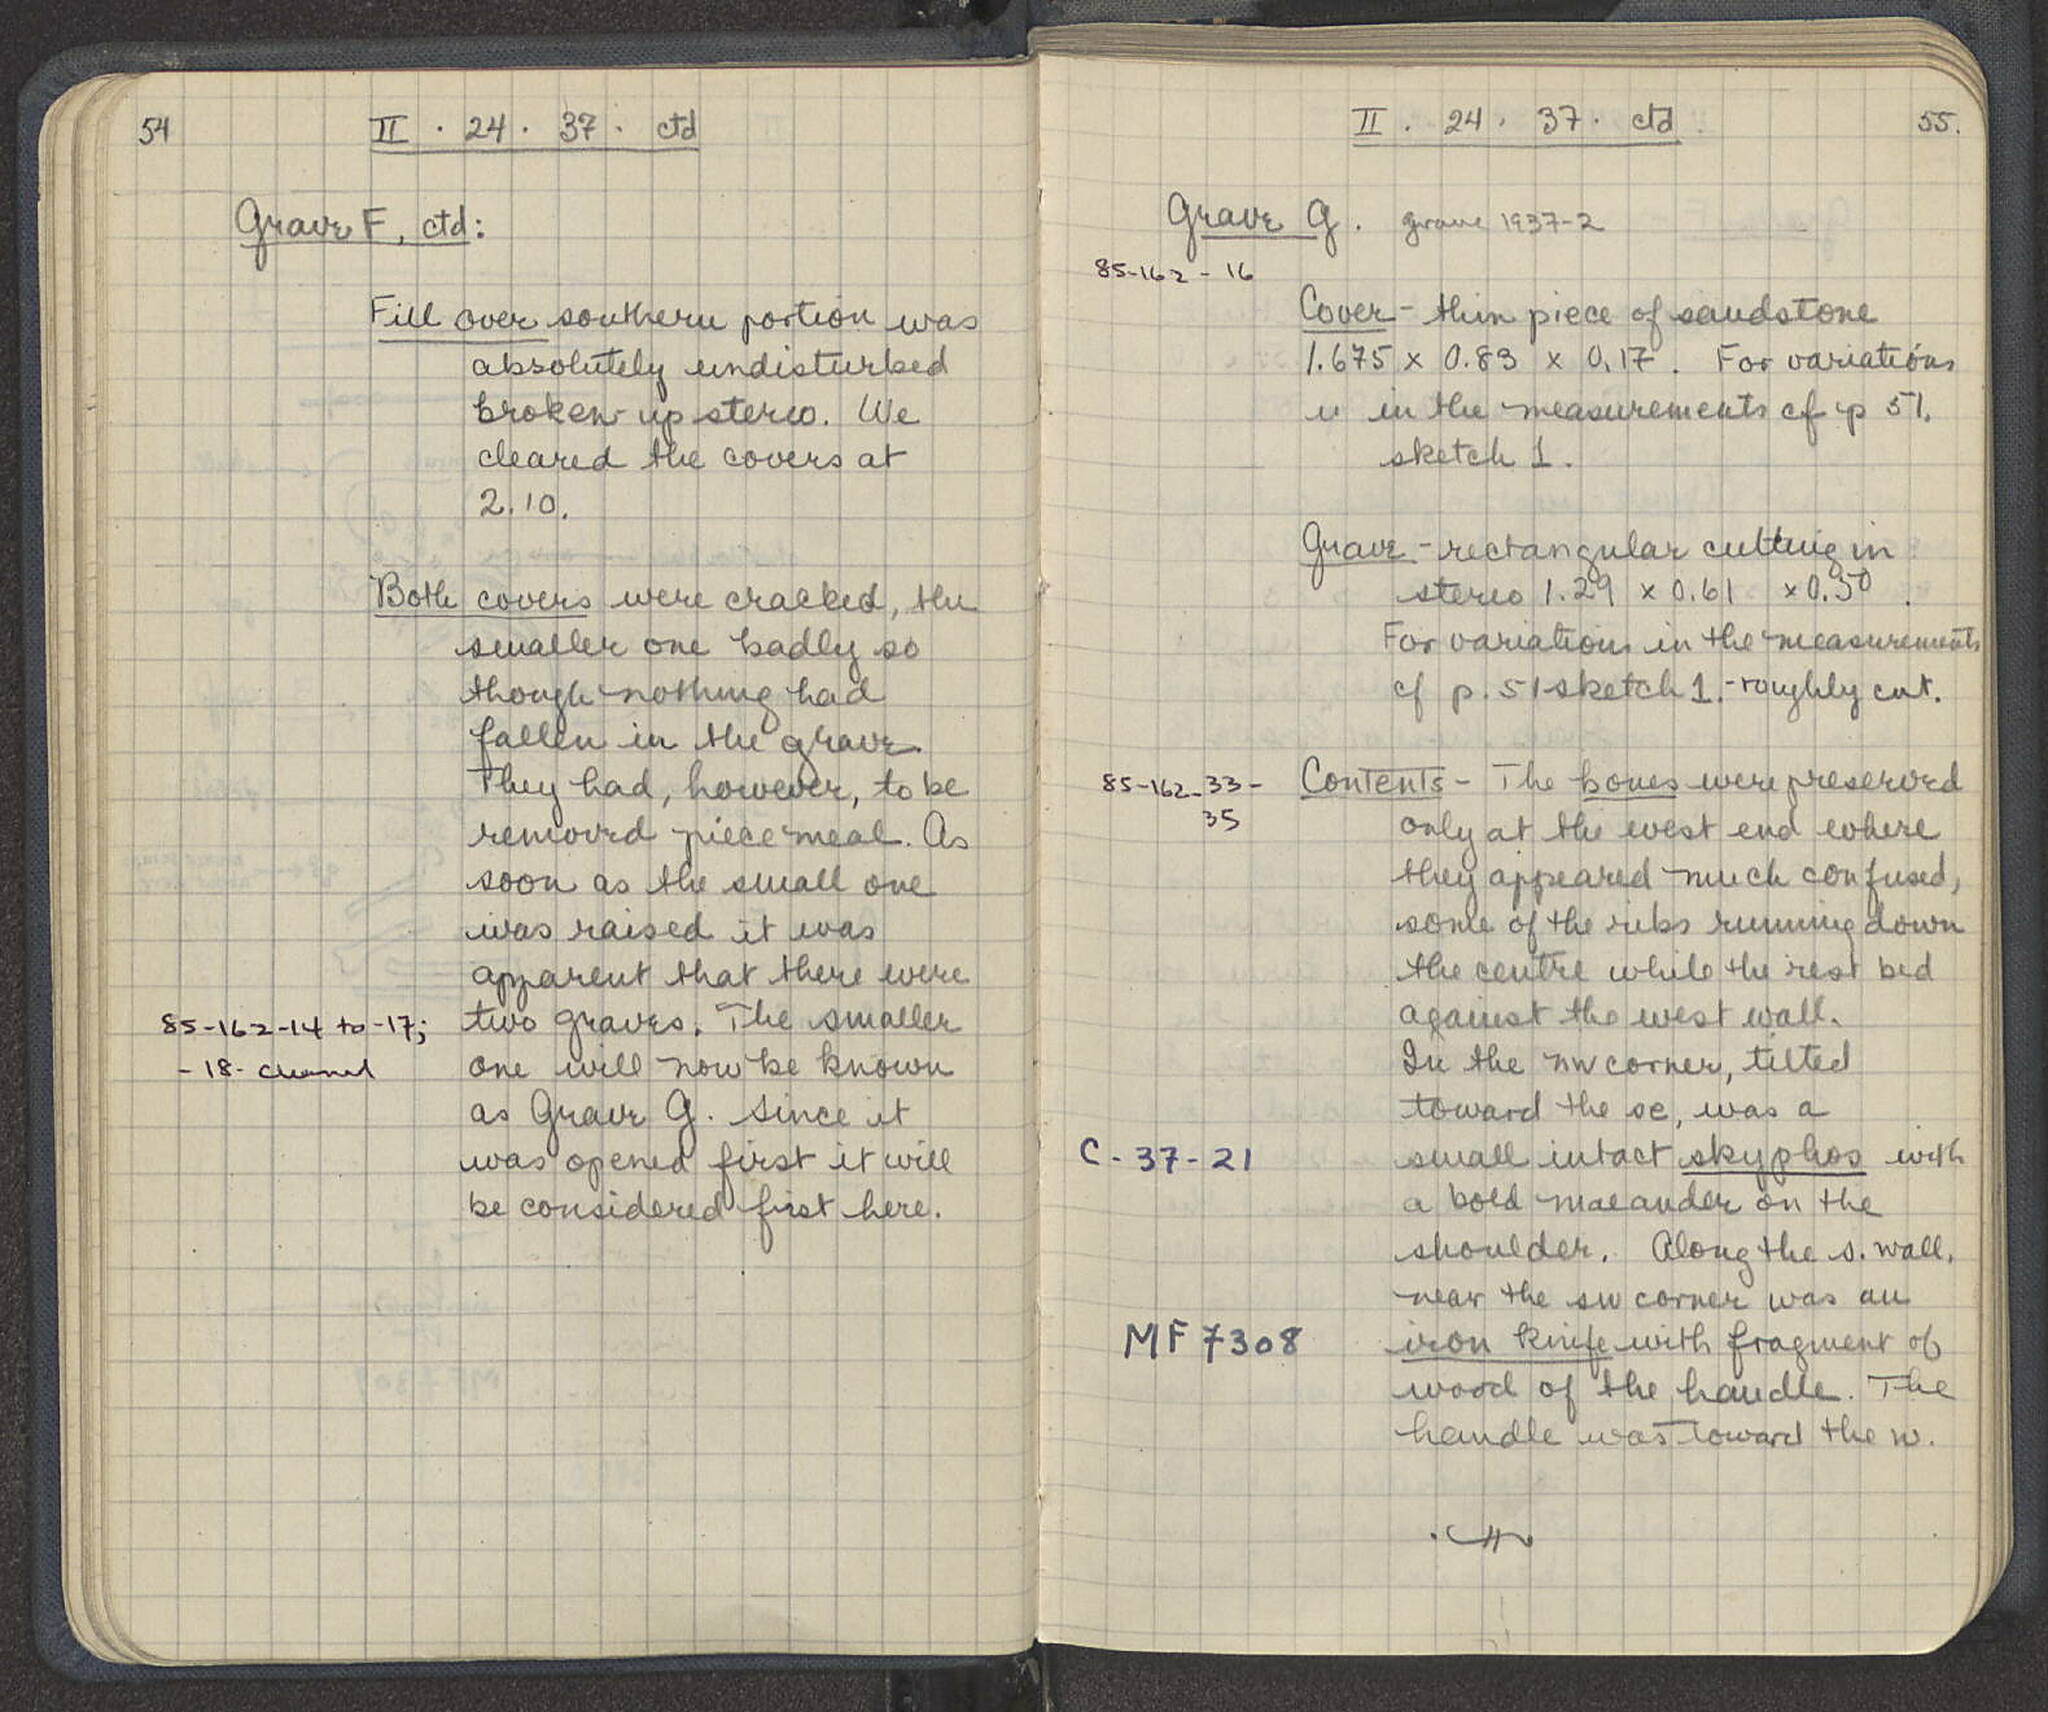 54
II · 24 · 37 · ctd
Grave F, ctd:
Fill over southern portion was
absolutely undisturbed
broken-up stereo. We
cleared the covers at
2.10.
Both covers were cracked, the
smaller one badly so
though nothing had
fallen in the grave.
They had, however, to be
removed piecemeal. As
soon as the small one
was raised it was
apparent that there were
85-162-14 to -17; two graves. The smaller
-18- channel one will now be known
as Grave G. Since it
was opened first it will
be considered first here.
II · 24 · 37 · ctd
55.
Grave G. grave 1937-2
85-162-16
Cover - thin piece of sandstone
1.675 x 0.83 x 0.17. For variations
in the measurements cf p 51.
sketch 1.
Grave - rectangular cutting in
stereo 1.29 x 0.61 x 0.50.
For variations in the measurements
cf p. 51 sketch 1. - roughly cut.
85-162-33- Contents - The bones were preserved
35 only at the west end where
they appeared much confused,
some of the ribs running down
the centre while the rest
against the west wall.
In the nw corner, tilted
toward the se, was a
C-37-21 small intact skyphos with
a bold maeander on the
shoulder. Along the s. wall,
near the sw corner was an
MF 7308 iron knife with fragment of
wood of the handle. The
handle was toward the w.